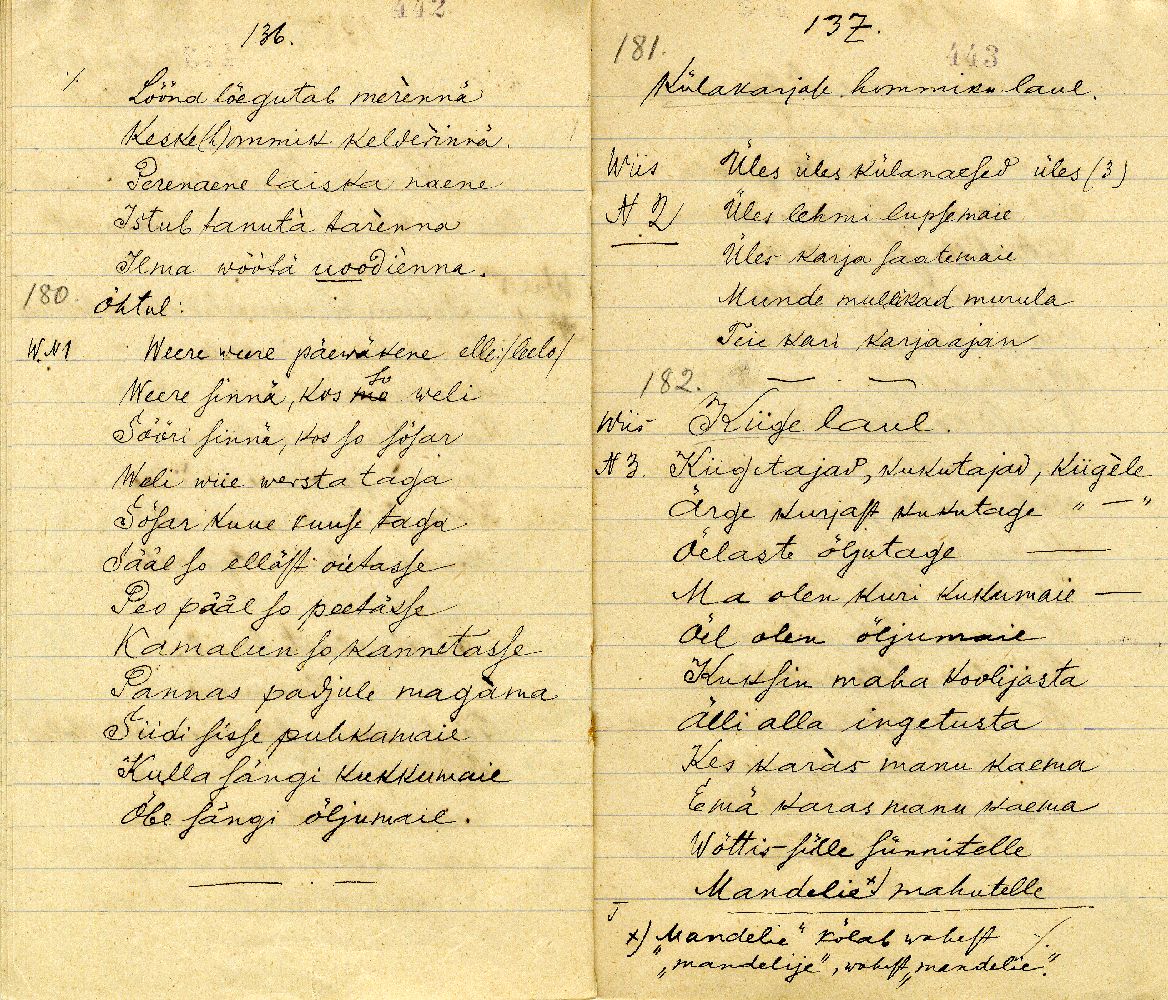 442
136.
⁒ Löönd lõegutab merènnä
Keske(h)ommik kelderinnä.
Perenaene laiska naene
Istub tanutà tarènna
Ilma wöötä uoodienna.
180. Õhtul:
W.N1 Weere weere päewäkene elle:/leelo/
Weere sinnä, kos so weli
Sööri sinnä, kos so sõsar
Weli wiie wersta taga
Sõsar kuue kuuse taga
Sääl so ellàst oietasse
Peo pääl so peetässe
Kamalun so kannetasse
Pannas padjule magàma
Siidi sisse puhkamaie
Kulla sängi kukkumaie
Õbe sängi õljumaie.
137.
443
181.
Külakarjase hommiku laul.
Wiis Üles üles külanaesed üles (3)
N 2 Üles lehmi lüpsemaie
Üles karja saatemaie
Munde mullikad murula
Teie kari karjaajan
182.
Wiis Kiige laul.
N 3 Kiigetajad, kukutajad, kiigèle
Ärge kurjast kukutage " — "
Õelaste õljutage —
Ma olen kuri kukumaie —
Õel olen õljumaie
Kuksin maha koolijasta
Älli alla ingetusta
Kes karàs manu kaema
Emä karas manu kaema
Wõttis sülle sünnitelle
Mandelie x) mahutelle
x) „Mandelie" kõlab wahest ⁒
„mandelije", wahest „mandelie".